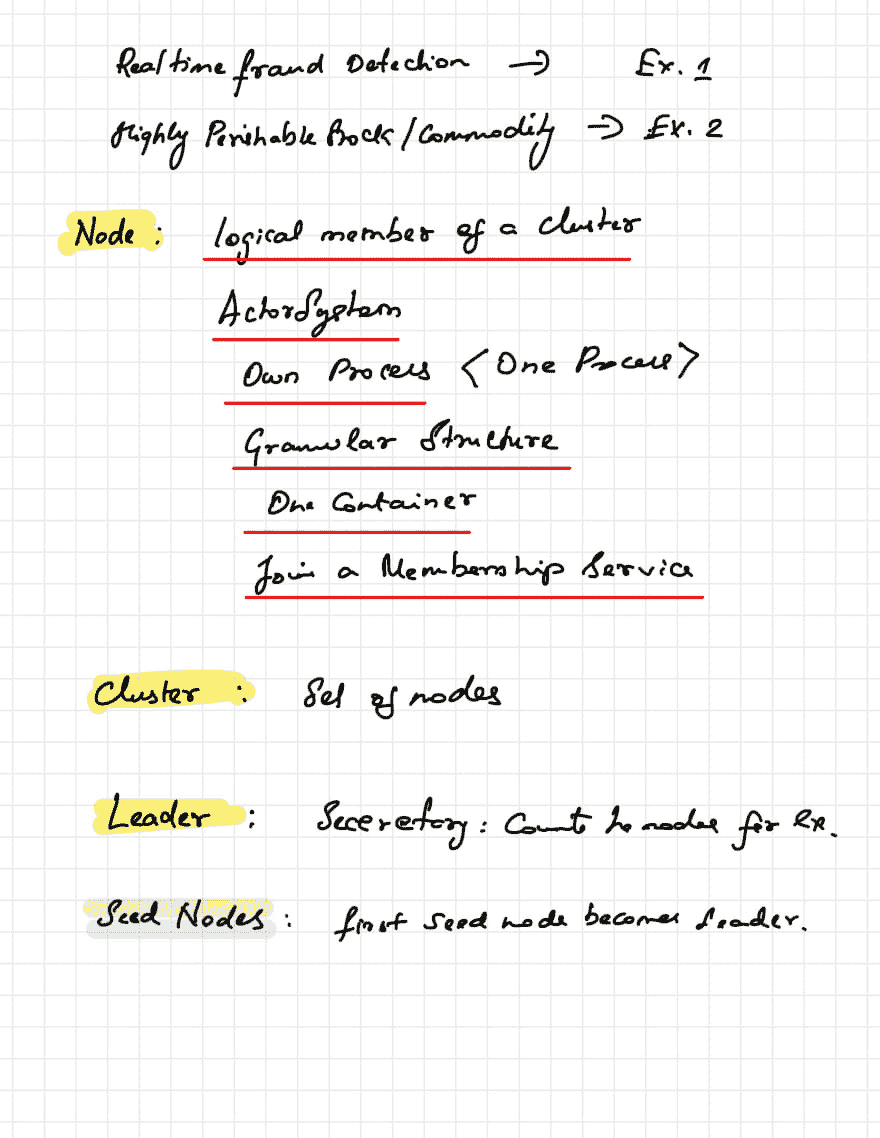 Realtime fraud Detection → Ex. 1
Highly Perishable Prock / Commodity → Ex. 2
Node : logical member of a cluster
ActorSystem
Own Process < One Process >
Granular Structure
One Container
Join a Membership Service
Cluster : Set of nodes
Leader : Seceretory : Counts the nodes for Ex.
Seed Nodes : first seed node becomes leader.